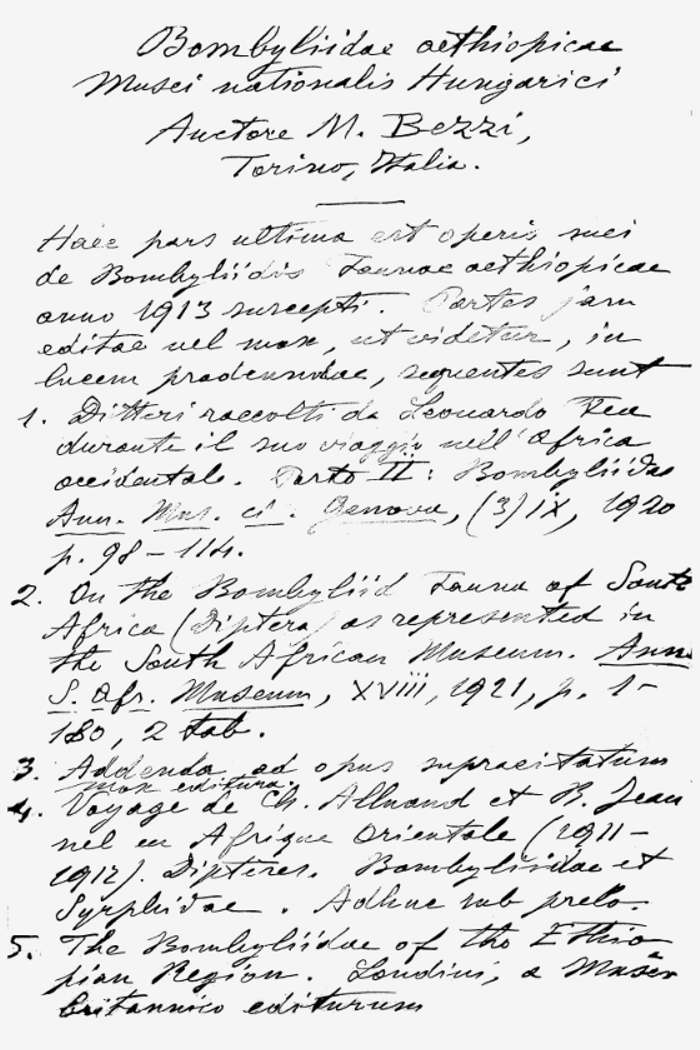 Bombyliidae aethiopicae
Musei nationalis Hungarici
Auctore M. Bezzi,
Torino, Italia.
Haec pars ultima est operis mei
de Bombyliidis Faunae aethiopicae
anno 1913 suscepti. Partes jam
editae vel mox, ut videtur, in
lucem prodeundae, sequentes sunt
1. Ditteri raccolti da Leonardo Fea
durante il suo viaggio nell'Africa
occidentale. Parte II: Bombyliidae
Ann. Mus. ci. Genova, (3) IX, 1920
p. 98-114.
2. On the Bombyliid Fauna of South
Africa (Diptera) as represented in
the South African Museum. Ann.
S. Afr. Museum, XVIII, 1921, p. 1-
180, 2 tab.
3. Addenda ad opus supracitatum
mox editura.
4. Voyage de Ch. Alluaud et R. Jean
nel en Afrique Orientale (1911-
1912). Diptères. Bombyliidae et
Syrphidae. Adhuc sub prelo.
5. The Bombyliidae of the Ethio
pian Region. Londini, a Museo
britannico editurum